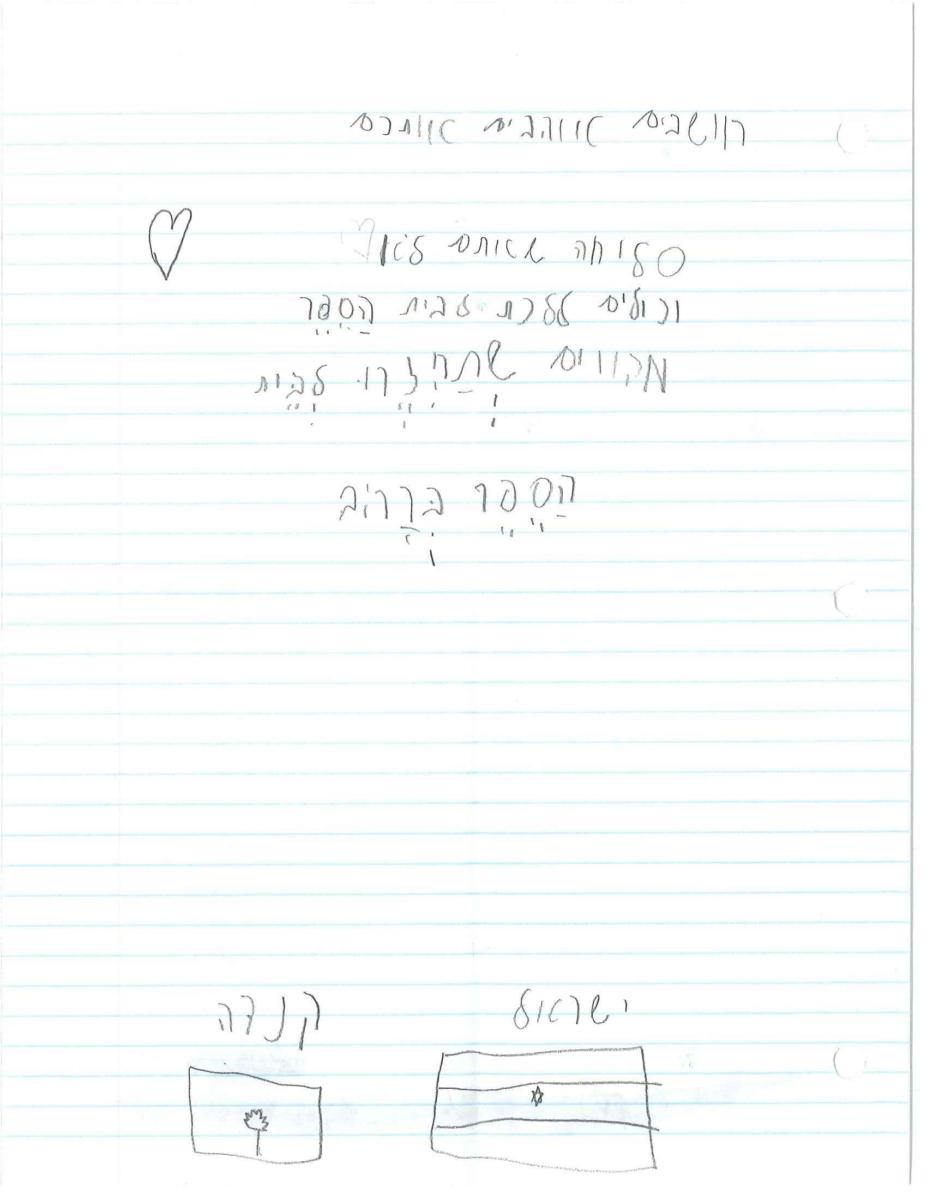 חושבים אוהבים אותכם
סליחה שאתם לא
יכולים ללכת לבית הַסֵפֶר
מקווים שתַחזרו לבֵית
הַסֵפֶר
ישראל קנדה